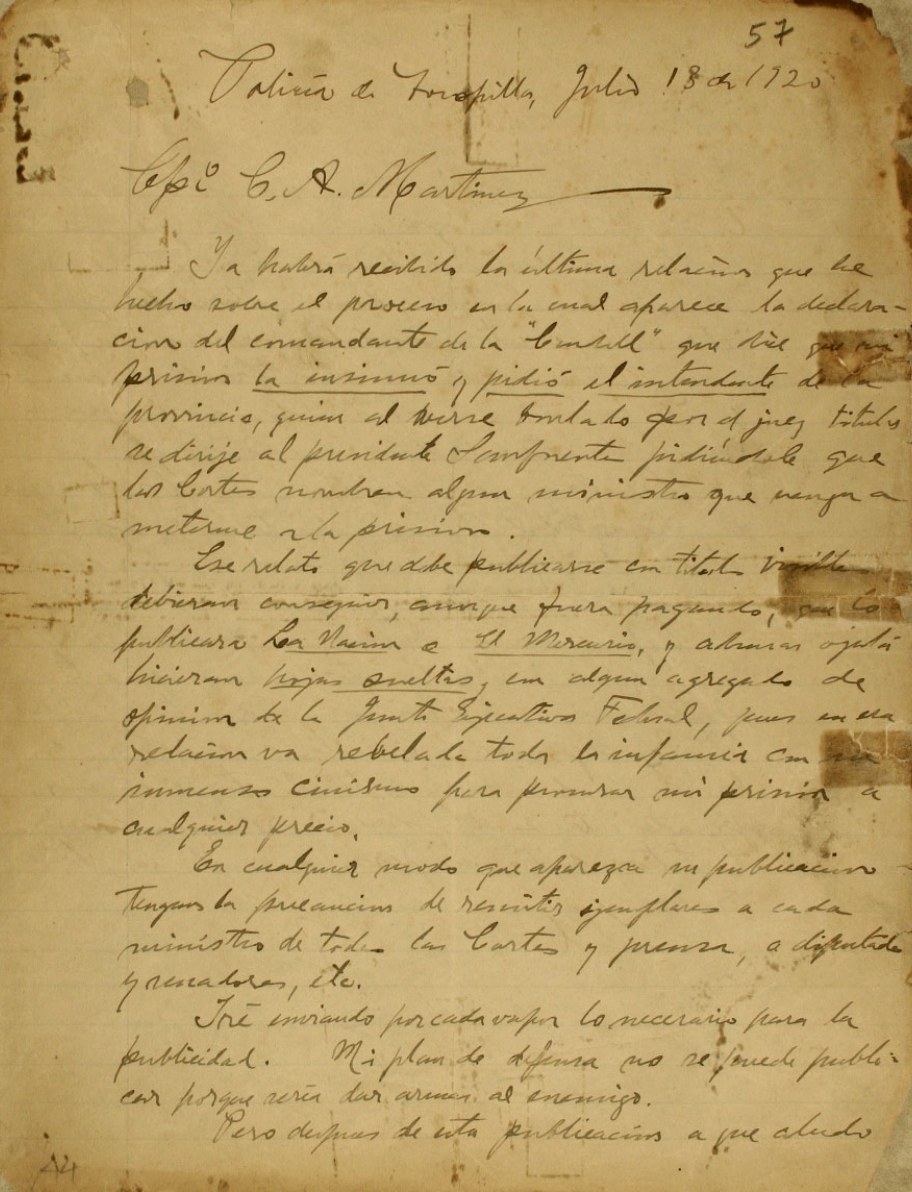 57
Policía de Tocopilla, Julio 18 de 1920
Cpº C. A. Martinez
Ya habrá recibido la última relación que he
hecho sobre el proceso en la cual aparece la declara-
cion del comandante de la "Condell" que dice que mi
prision la insinuó y pidió el intendente de la
provincia, quien al verse burlado por el juez titular
se dirije al presidente Sanfuentes pidiéndole que
las Cortes nombren algun ministro que venga a
meterme a la prision.
Ese relato que debe publicarse con titulos visibles
debieran conseguir, aunque fuera pagando, que lo
publicara La Nacion o El Mercurio, y ademas ojalá
hicieran hojas sueltas, con algun agregado de
opinion de la Junta Ejecutiva Federal, pues en esa
relacion va rebelada toda la infamia con un
inmenso cinismo para procurar mi prision a
cualquier precio.
En cualquier modo que aparezca su publicacion
tengan la precaucion de remitir ejemplares a cada
ministro de todas las Cortes y prensa, a diputados
y senadores, etc.
Iré enviando por cada vapor lo necesario para la
publicidad. Mi plan de defensa no se puede publi-
car porque sería dar armas al enemigo.
Pero despues de esta publicacion a que aludo
44